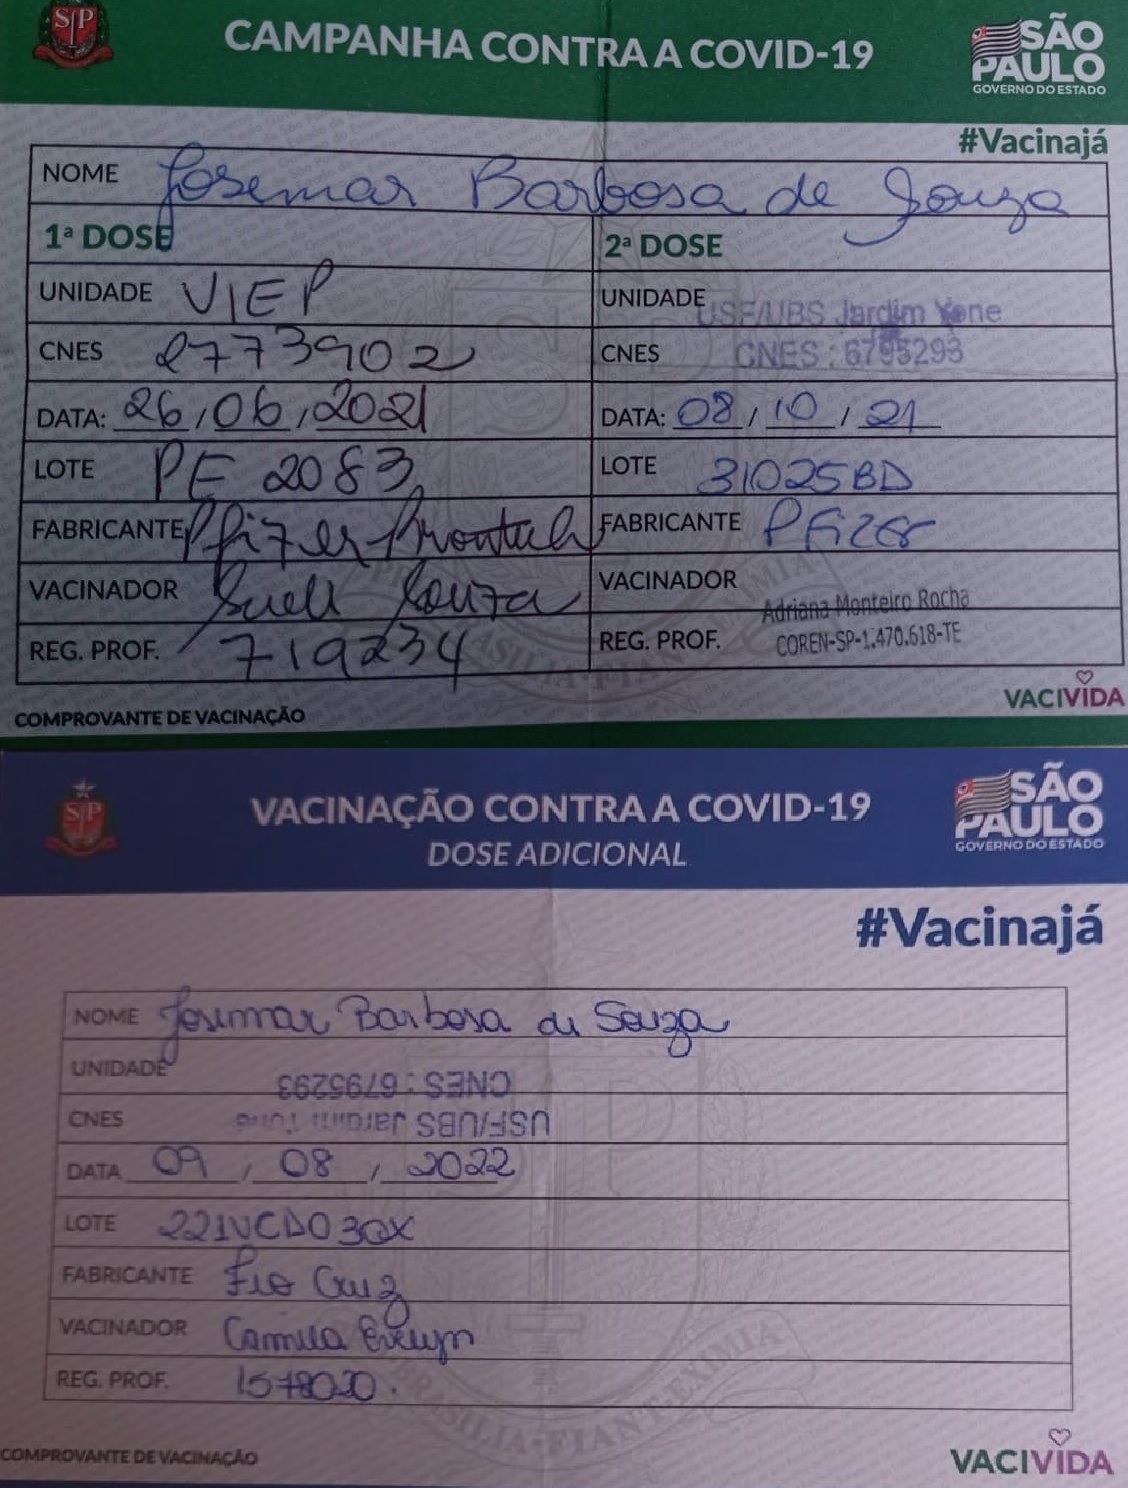 SP
CAMPANHA CONTRA A COVID-19
SÃO PAULO
GOVERNO DO ESTADO
#Vacinajá
NOME Josemar Barbosa de Souza
1ª DOSE
2ª DOSE
UNIDADE VIEP
UNIDADE USF/UBS Jardim Yone
CNES 2773902
CNES CNES : 6795293
DATA: 26/06/2021
DATA: 08/10/21
LOTE PE 2083
LOTE 31025BD
FABRICANTE Pfizer
FABRICANTE PFizer
VACINADOR Sueli Souza
VACINADOR Adriana Monteiro Rocha
REG. PROF. 719234
REG. PROF. COREN-SP-1.470.618-TE
COMPROVANTE DE VACINAÇÃO
VACIVIDA
SP
VACINAÇÃO CONTRA A COVID-19
DOSE ADICIONAL
SÃO PAULO
GOVERNO DO ESTADO
#Vacinajá
NOME Josemar Barbosa de Souza
UNIDADE CNES : 6795293
CNES USF/UBS Jardim Yone
DATA 09/08/2022
LOTE 221VCD030X
FABRICANTE Fio Cruz
VACINADOR Camila Evelyn
REG. PROF. 1578020.
COMPROVANTE DE VACINAÇÃO
VACIVIDA